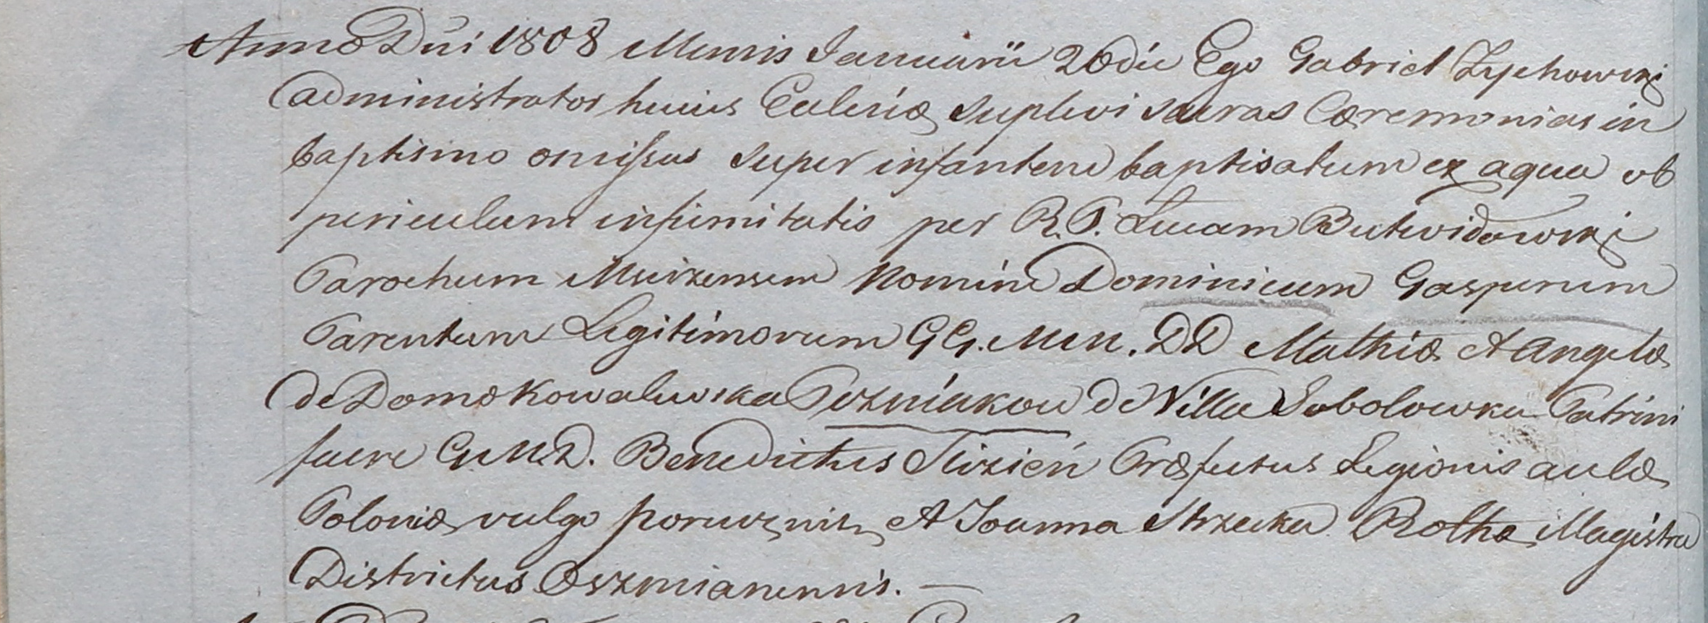 Anno Dni 1808 Mensis Januarii 26 die Ego Gabriel Zychowski
administrator huius Eclesiæ suplevi sacras Cæremonias in
baptismo omissas super infantem baptisatum ex aqua ob
periculum infirmitatis per R. P. Lucam Butwidowski
Parochum nomine Dominicum Gasperum
Parentum Legitimorum GG. MM. DD Mathiæ et Angelæ
de Domo Kowalewska de Villa Sobolowka Patrini
fuere G. M. D. Benedictus Præfectus Legionis aulæ
Poloniæ vulgo porucznik et Joanna Strzecka Rothæ Magistra
Districtus Oszmianensis. —